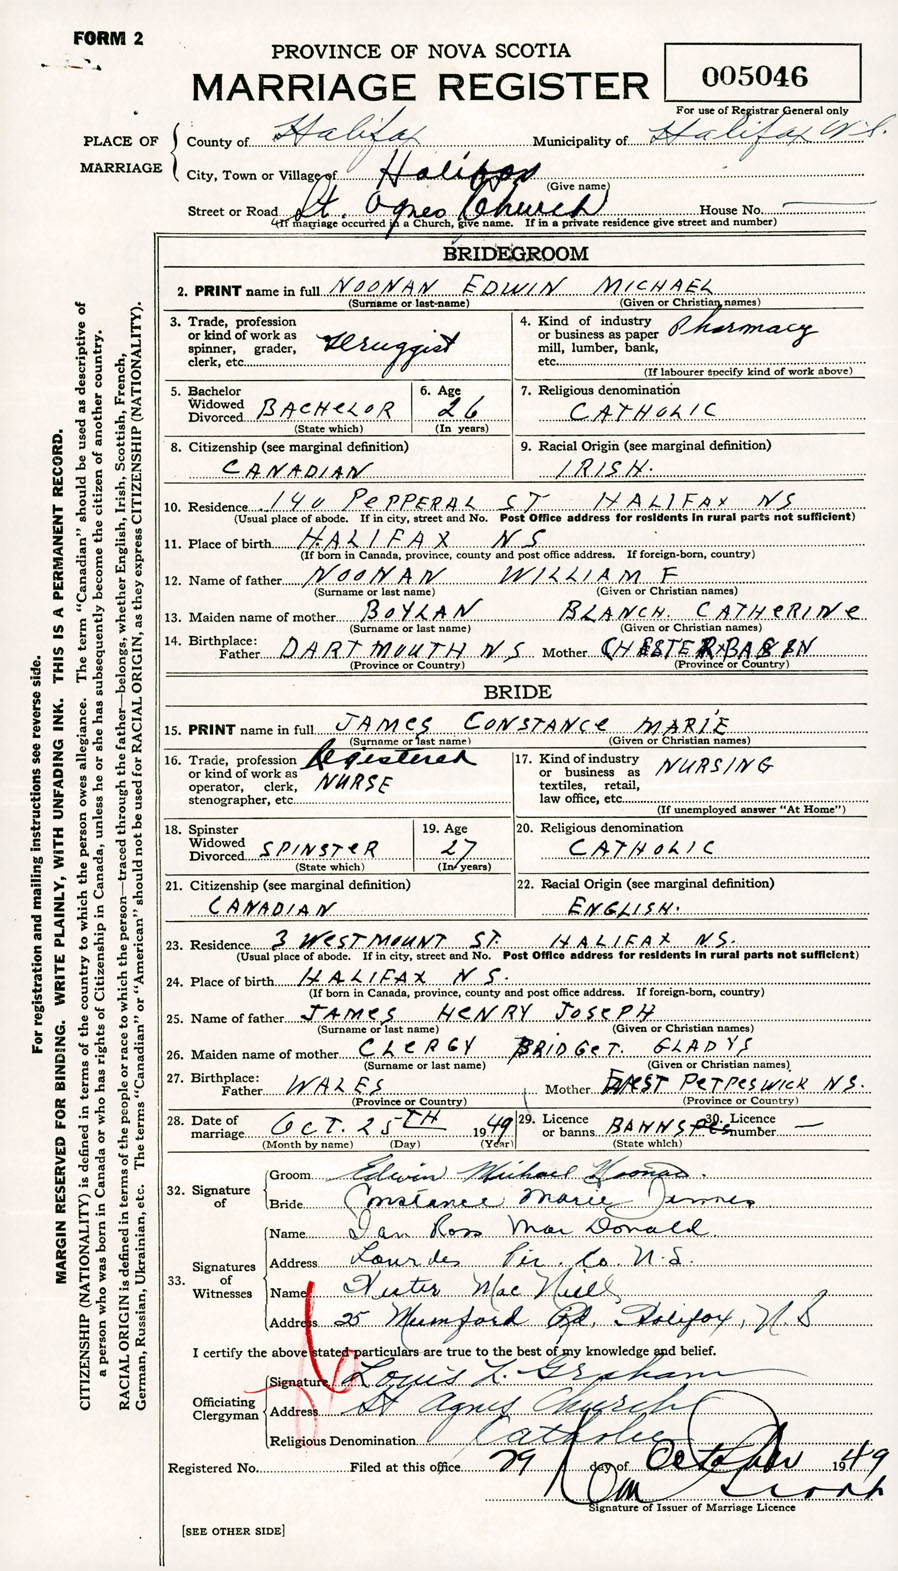 FORM 2
PROVINCE OF NOVA SCOTIA
MARRIAGE REGISTER
005046
For use of Registrar General only
PLACE OF MARRIAGE
County of Halifax Municipality of Halifax N.S.
City, Town or Village of Halifax
(Give name)
Street or Road St. Agnes Church House No.
(If marriage occurred in a Church, give name. If in a private residence give street and number)
BRIDEGROOM
2. PRINT name in full NOONAN EDWIN MICHAEL
(Surname or last-name) (Given or Christian names)
3. Trade, profession or kind of work as spinner, grader, clerk, etc. Druggist
4. Kind of industry or business as paper mill, lumber, bank, etc. Pharmacy
(If labourer specify kind of work above)
5. Bachelor Widowed Divorced BACHELOR
(State which)
6. Age 26
(In years)
7. Religious denomination
CATHOLIC
8. Citizenship (see marginal definition)
CANADIAN
9. Racial Origin (see marginal definition)
IRISH.
10. Residence 140 PEPPERAL ST HALIFAX NS
(Usual place of abode. If in city, street and No. Post Office address for residents in rural parts not sufficient)
11. Place of birth HALIFAX NS
(If born in Canada, province, county and post office address. If foreign-born, country)
12. Name of father NOONAN WILLIAM F
(Surname or last name) (Given or Christian names)
13. Maiden name of mother BOYLAN BLANCH. CATHERINE
(Surname or last name) (Given or Christian names)
14. Birthplace: Father DARTMOUTH N S Mother CHESTER BASIN
(Province or Country) (Province or Country)
BRIDE
15. PRINT name in full JAMES CONSTANCE MARIE
(Surname or last name) (Given or Christian names)
16. Trade, profession or kind of work as operator, clerk, stenographer, etc. Registered NURSE
17. Kind of industry or business as textiles, retail, law office, etc. NURSING
(If unemployed answer "At Home")
18. Spinster Widowed Divorced SPINSTER
(State which)
19. Age 27
(In years)
20. Religious denomination
CATHOLIC
21. Citizenship (see marginal definition)
CANADIAN
22. Racial Origin (see marginal definition)
ENGLISH.
23. Residence 3 WESTMOUNT ST. HALIFAX NS.
(Usual place of abode. If in city, street and No. Post Office address for residents in rural parts not sufficient)
24. Place of birth HALIFAX N S.
(If born in Canada, province, county and post office address. If foreign-born, country)
25. Name of father JAMES HENRY JOSEPH
(Surname or last name) (Given or Christian names)
26. Maiden name of mother CLERGY BRIDGET. GLADYS
(Surname or last name) (Given or Christian names)
27. Birthplace: Father WALES Mother WEST PETPESWICK N S.
(Province or Country) (Province or Country)
28. Date of marriage OCT. 25TH 1949
(Month by name) (Day) (Year)
29. Licence or banns BANNS
(State which)
30. Licence number —
32. Signature of
Groom Edwin Michael Noonan.
Bride Constance Marie James
33. Signatures of Witnesses
Name Ian Ross MacDonald
Address Lourdes Pic. Co. N.S.
Name Hester MacNeill
Address 25 Mumford Rd, Halifax, N.S
I certify the above stated particulars are true to the best of my knowledge and belief.
Officiating Clergyman
Signature Louis L. Graham
Address St Agnes Church
Religious Denomination Catholic
Registered No. Filed at this office 29 day of October 1949
Signature of Issuer of Marriage Licence
[SEE OTHER SIDE]
For registration and mailing instructions see reverse side.
MARGIN RESERVED FOR BINDING. WRITE PLAINLY, WITH UNFADING INK. THIS IS A PERMANENT RECORD.
CITIZENSHIP (NATIONALITY) is defined in terms of the country to which the person owes allegiance. The term "Canadian" should be used as descriptive of
a person who was born in Canada or who has rights of Citizenship in Canada, unless he or she has subsequently become the citizen of another country.
RACIAL ORIGIN is defined in terms of the people or race to which the person—traced through the father—belongs, whether English, Irish, Scottish, French,
German, Russian, Ukrainian, etc. The terms "Canadian" or "American" should not be used for RACIAL ORIGIN, as they express CITIZENSHIP (NATIONALITY).